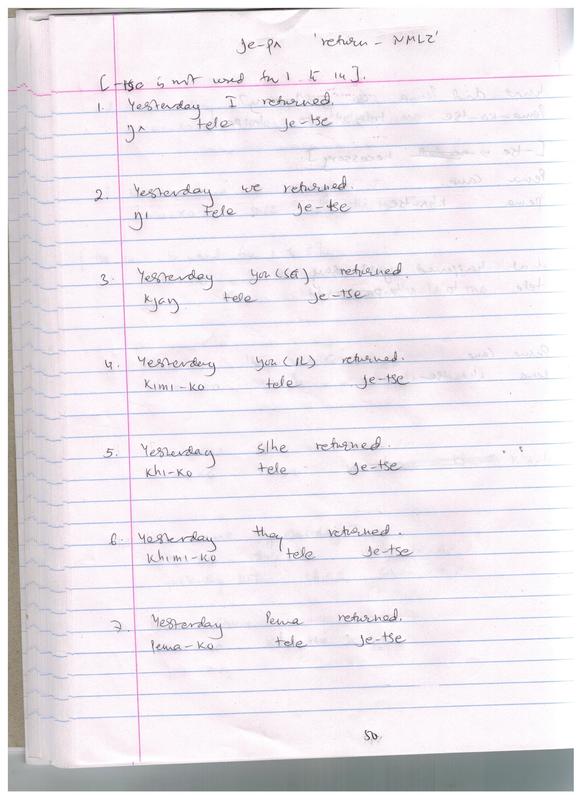 je-pʌ 'return-NMLZ'
[-tso is not used for 1 to 14].
1. Yesterday I returned.
ŋʌ tele je-tse
2. Yesterday we returned.
ŋi tele je-tse
3. Yesterday you(SG) returned.
kjaŋ tele je-tse
4. Yesterday you(PL) returned.
kimi-ko tele je-tse
5. Yesterday s/he returned.
khi-ko tele je-tse
6. Yesterday they returned.
khimi-ko tele je-tse
7. Yesterday Pema returned.
Pema-ko tele je-tse
50